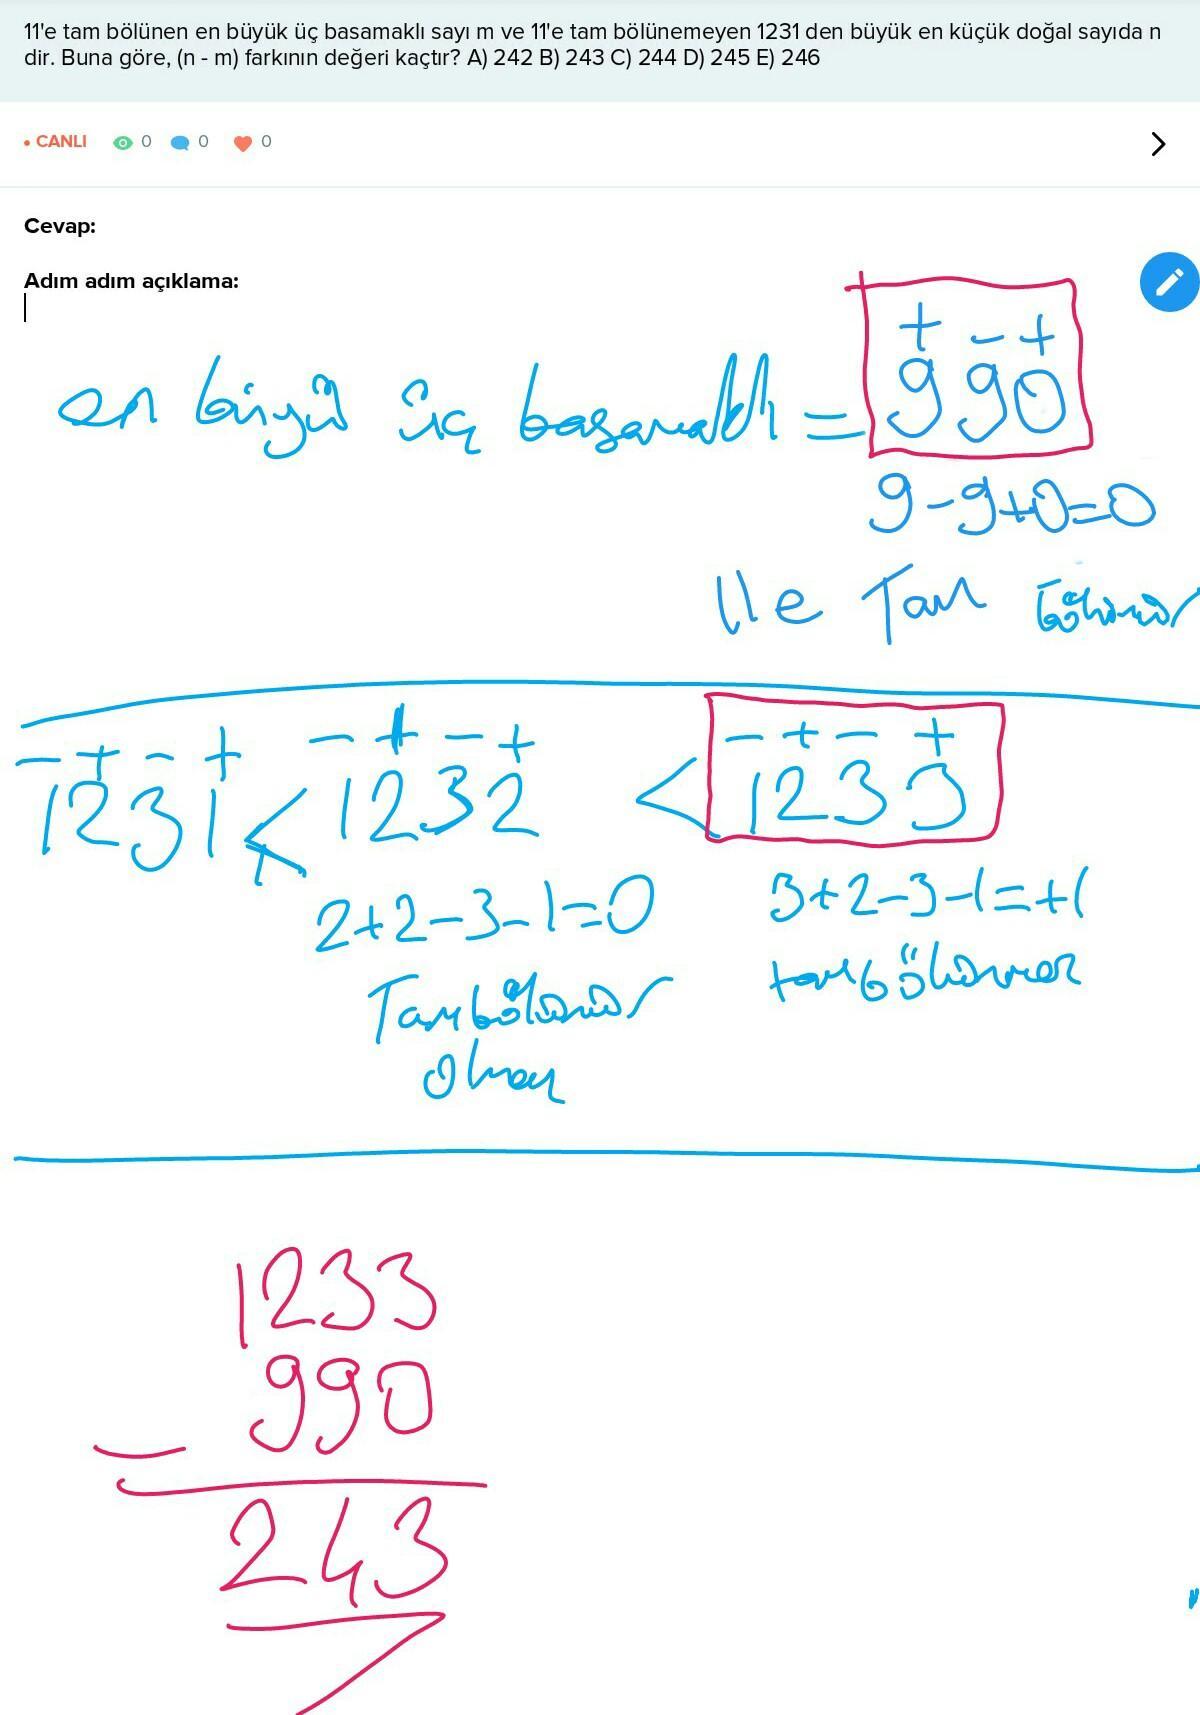 11'e tam bölünen en büyük üç basamaklı sayı m ve 11'e tam bölünemeyen 1231 den büyük en küçük doğal sayıda n
dir. Buna göre, (n - m) farkının değeri kaçtır? A) 242 B) 243 C) 244 D) 245 E) 246
• CANLI 0 0 0
Cevap:
Adım adım açıklama:
+ - +
en büyük üç basamaklı = 990
9-9+0=0
11 e Tam bölünür
- + - + - + - + - + - +
1231 < 1232 < 1233
2+2-3-1=0 3+2-3-1=+1
Tam bölünür tam bölünmez
olmaz
1233
990
-
243